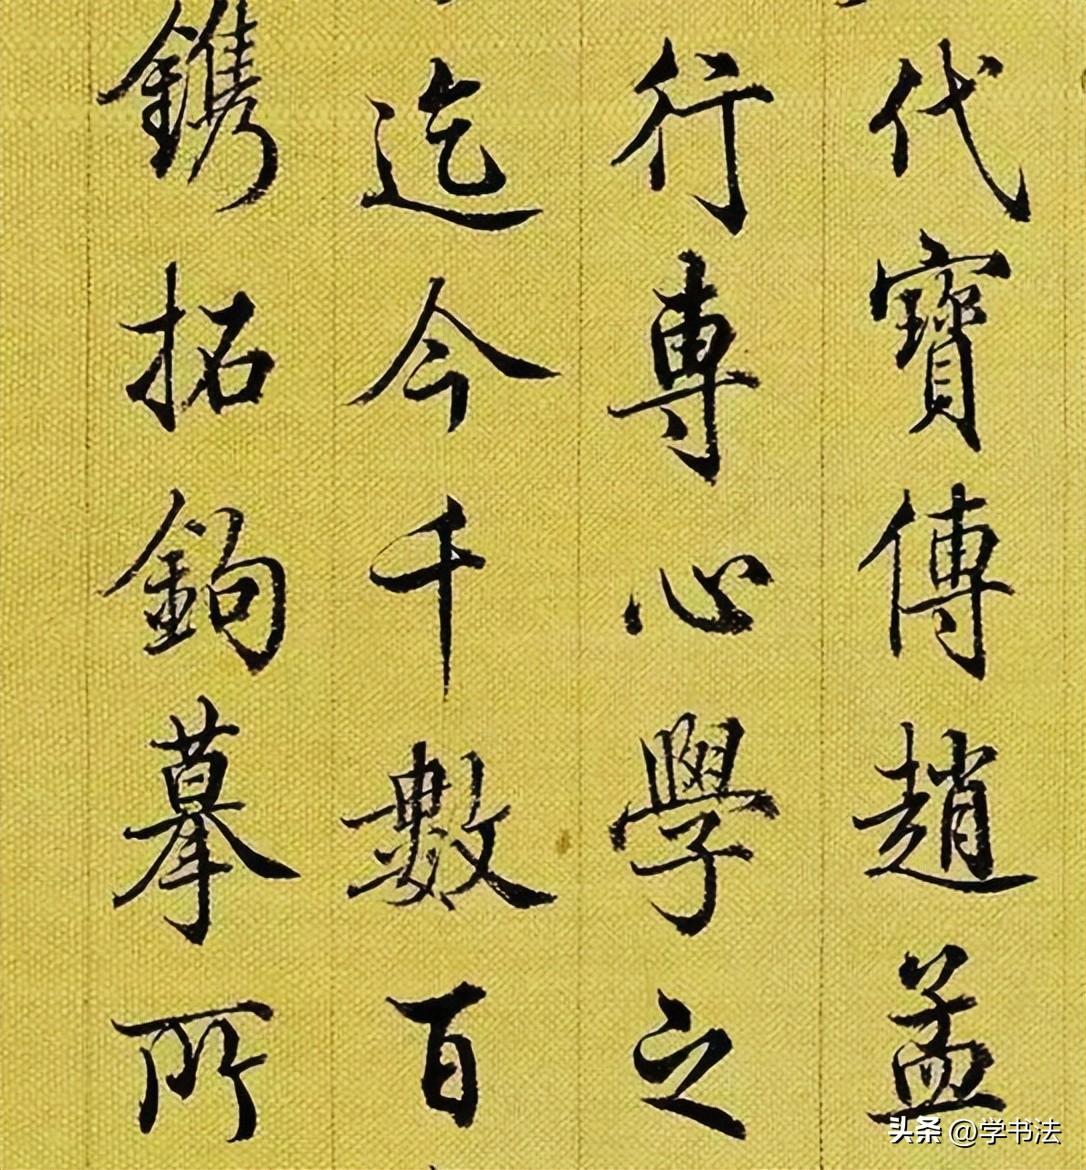 代寳傳趙孟
行專心學之
迄今千數百
鐫拓鉤摹所
头条 @学书法